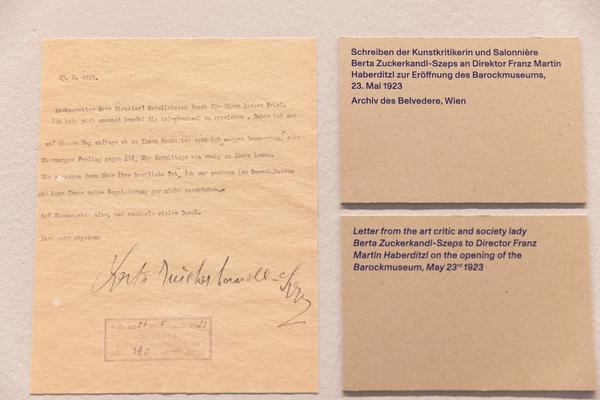 23. 5. 1923.
Hochverehrter Herr Direktor! Herzlichsten Dank für Ihren lieben Brief.
Ich habe mich umsonst bemüht Sie telephonisch zu erreichen. Daher ich nun
auf diesem Weg anfrage ob es Ihnen Recht ist wenn ich morgen Donnerstag, oder
Übermorgen Freitag gegen 1/2, Uhr Vormittags ein wenig zu Ihnen komme.
Wir sprechen dann über Ihre herrliche Tat, ich war gestern im Barock Museum
und kann Ihnen meine Begeisterung gar nicht ausdrücken.
Auf Wiedersehen also, und nochmals vielen Dank.
Ihre sehr ergebene
Berta Zuckerkandl-Szeps
Schreiben der Kunstkritikerin und Salonnière
Berta Zuckerkandl-Szeps an Direktor Franz Martin
Haberditzl zur Eröffnung des Barockmuseums,
23. Mai 1923
Archiv des Belvedere, Wien
Letter from the art critic and society lady
Berta Zuckerkandl-Szeps to Director Franz
Martin Haberditzl on the opening of the
Barockmuseum, May 23rd 1923